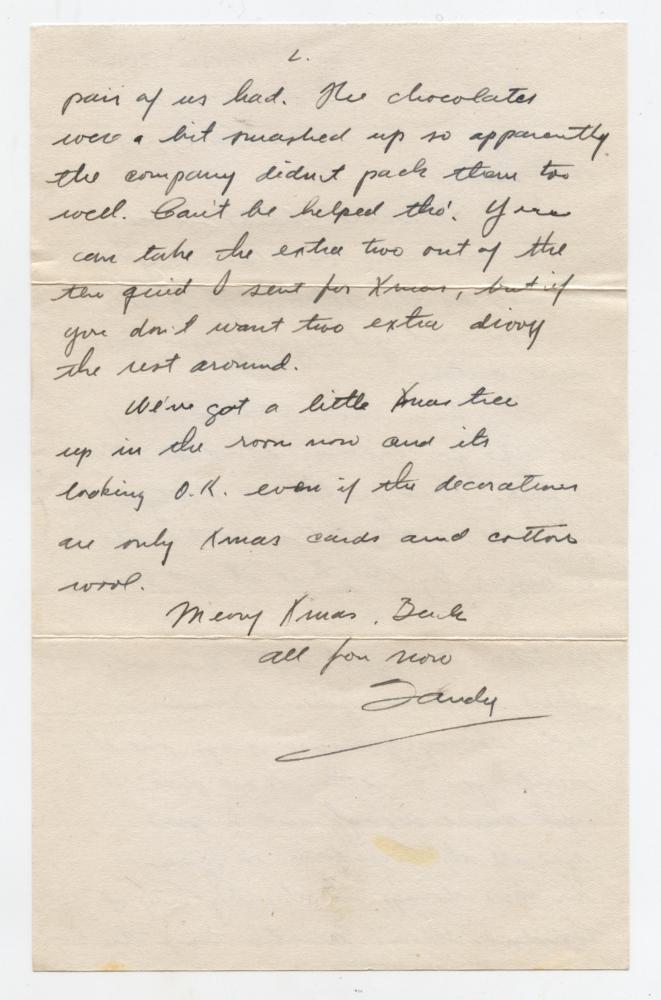 2.
pair of us had. The chocolates
were a bit smashed up so apparently
the company didn't pack them too
well. Can't be helped tho'. You
can take the extra two out of the
ten quid I sent for Xmas, but if
you don't want two extra divvy
the rest around.
We've got a little Xmas tree
up in the room now and its
looking O.K. even if the decorations
are only Xmas cards and cotton
wool.
Merry Xmas,
all for now
Sandy